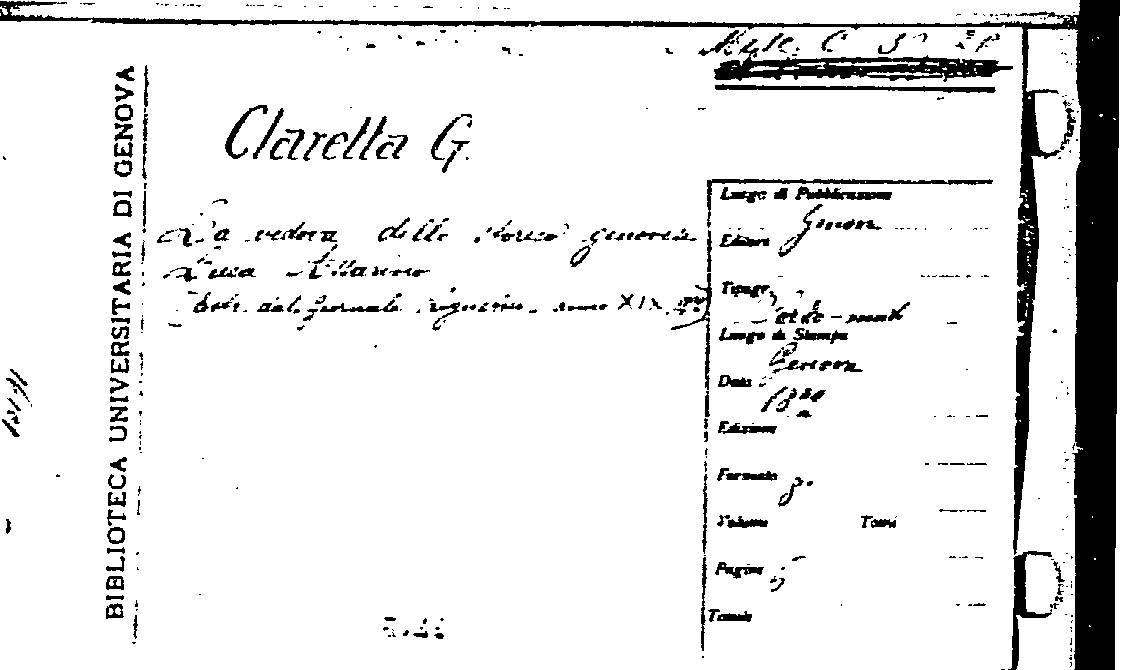 BIBLIOTECA UNIVERSITARIA DI GENOVA
Misc. C
Claretta G.
La vedova dello storico genovese
Luca Assarino
Estr. dal Giornale Ligustico, anno XIX
Luogo di Pubblicazione
Genova
Editore
Tipogr.
Sordo-muti
Luogo di Stampa
Genova
Data
Edizione
Formato 8.
Volume Tomi
Pagine 5
Tavole